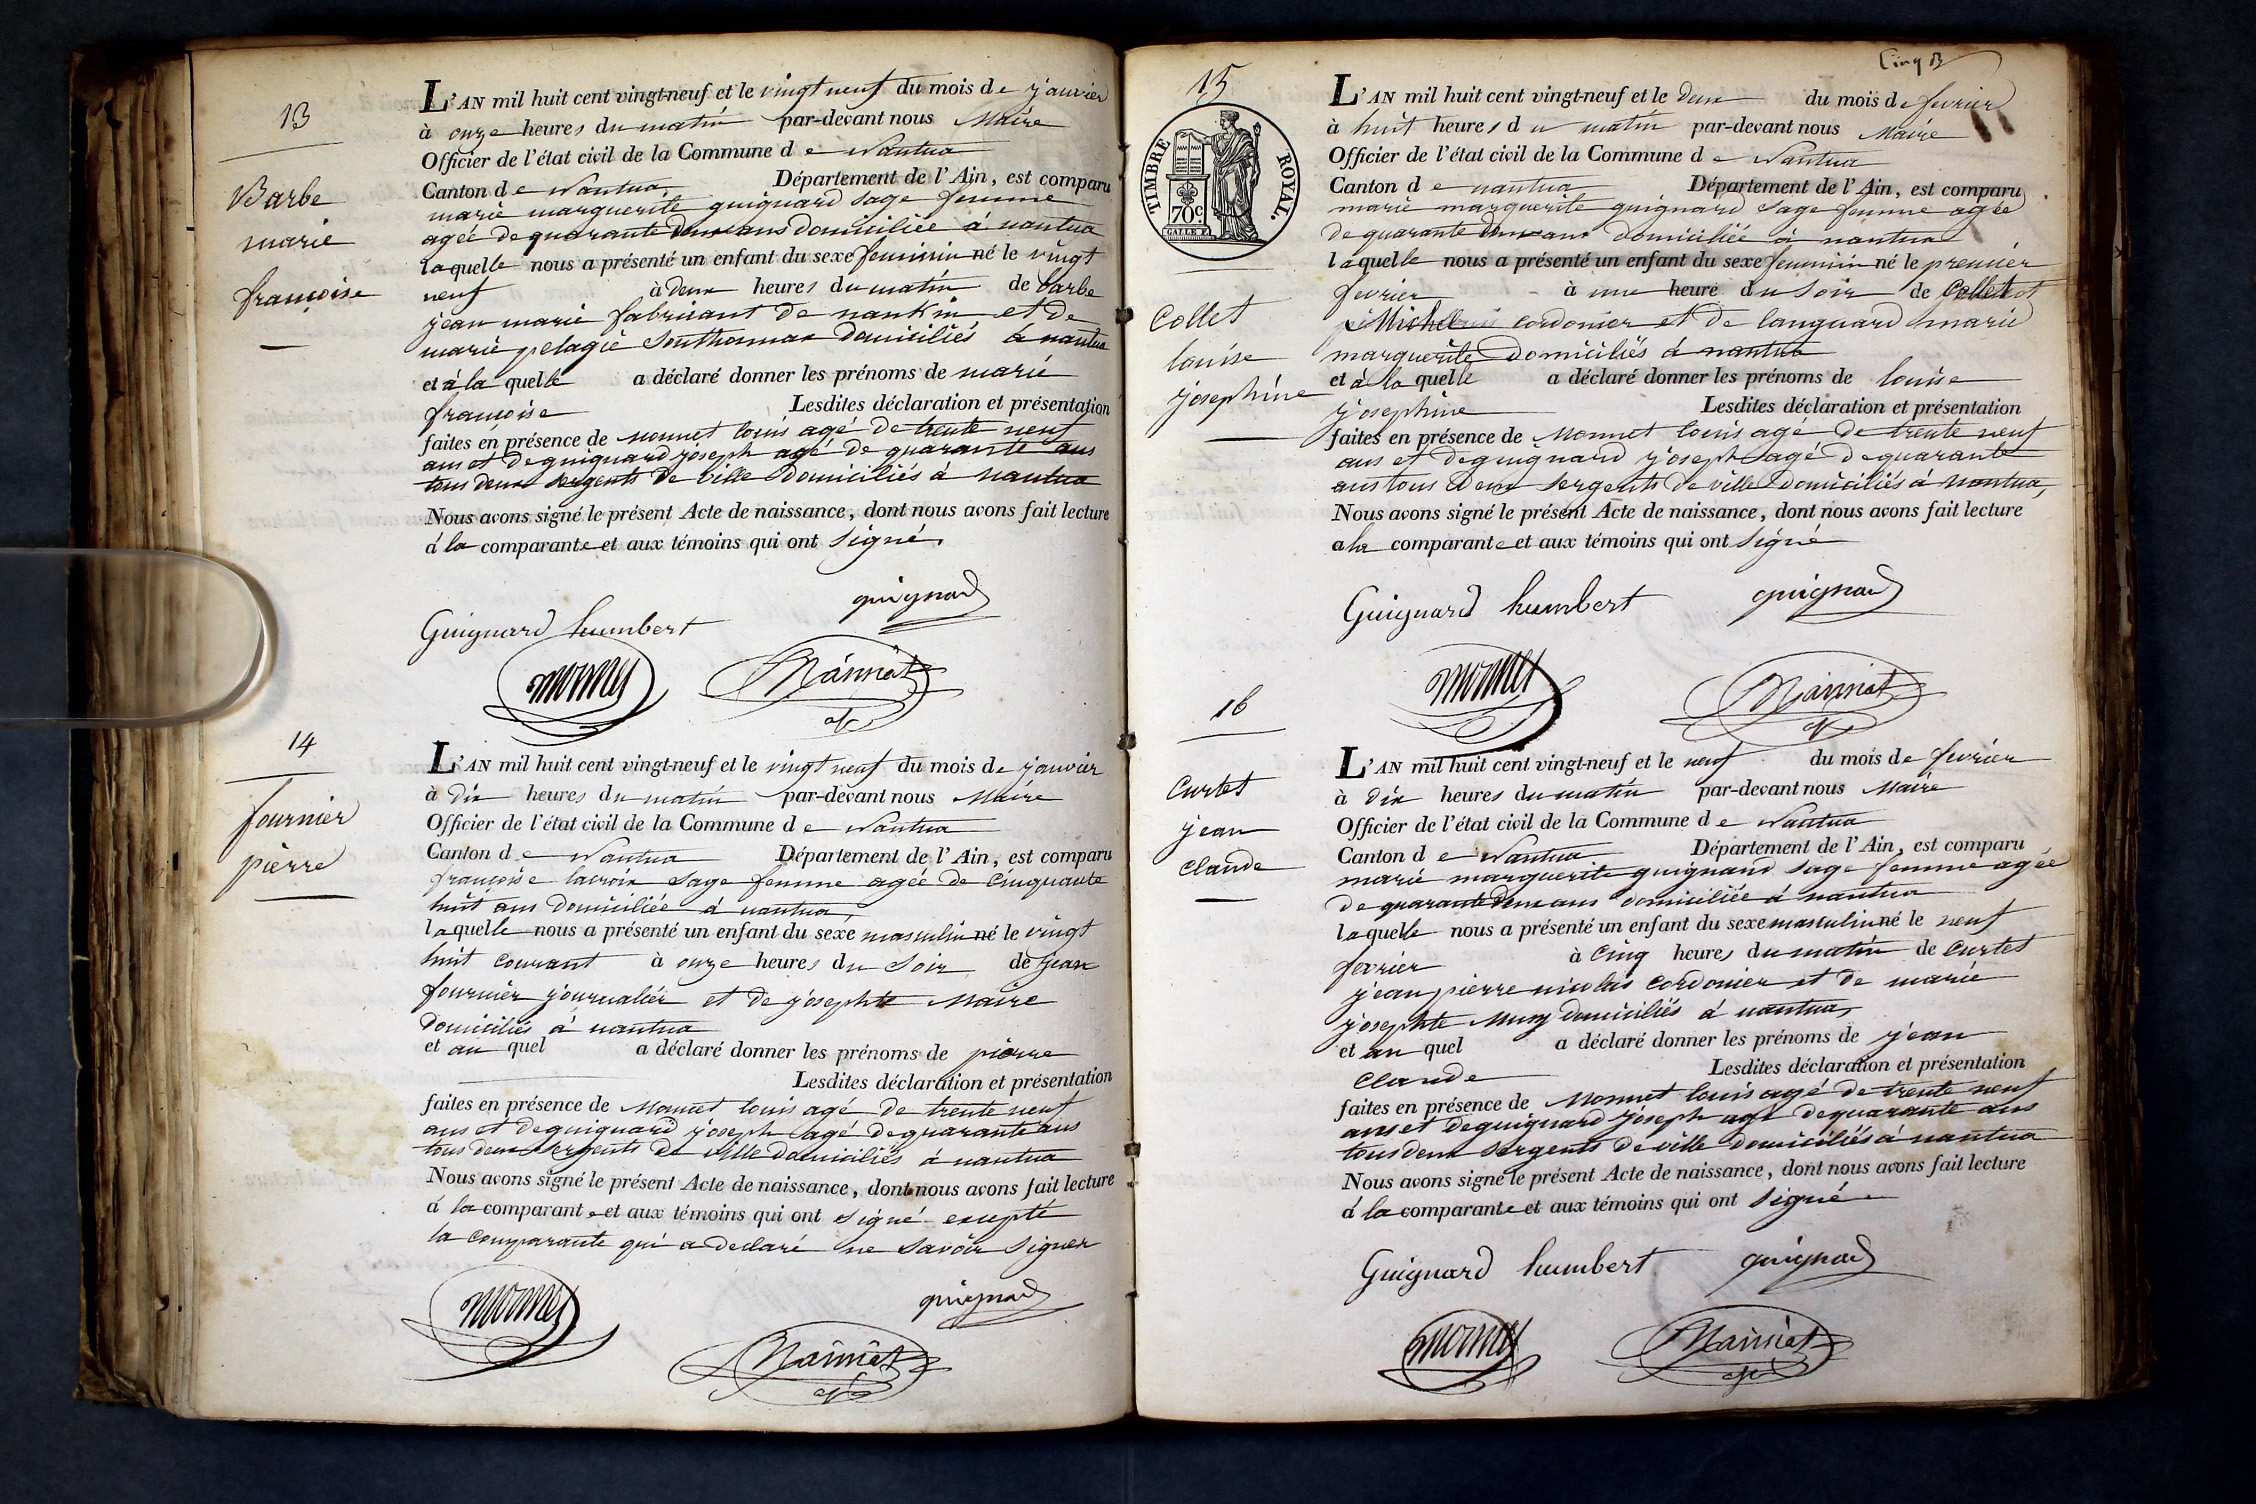 13
Barbe
marie
françoise
L'AN mil huit cent vingt-neuf et le vingt neuf du mois de janvier
à onze heures du matin par-devant nous Maire
Officier de l'état civil de la Commune de Nantua
Canton de Nantua. Département de l'Ain, est comparu
marie marguerite guignard sage femme
agée de quarante deux ans domiciliée à nantua
laquelle nous a présenté un enfant du sexe feminin né le vingt
neuf à deux heures du matin de barbe
jean marie fabricant de nankin et de
marie pelagie Southonnax domiciliés à nantua
et à la quelle a déclaré donner les prénoms de marie
françoise Lesdites déclaration et présentation
faites en présence de Monnet louis agé de trente neuf
ans et de guignard joseph agé de quarante ans
tous deux sergents de ville domiciliés à nantua
Nous avons signé le présent Acte de naissance, dont nous avons fait lecture
à la comparante et aux témoins qui ont signé.
Guignard humbert guignard
monnet
14
fournier
pierre
L'AN mil huit cent vingt-neuf et le vingt neuf du mois de janvier
à dix heures du matin par-devant nous Maire
Officier de l'état civil de la Commune de Nantua
Canton de Nantua Département de l'Ain, est comparu
françoise lacroix sage femme agée de cinquante
huit ans domiciliée à nantua,
laquelle nous a présenté un enfant du sexe masculin né le vingt
huit courant à onze heures du soir de jean
fournier journalier et de josephte Maire
domiciliés à nantua
et au quel a déclaré donner les prénoms de pierre
Lesdites déclaration et présentation
faites en présence de Monnet louis agé de trente neuf
ans et de guignard joseph agé de quarante ans
tous deux sergents de ville domiciliés à nantua
Nous avons signé le présent Acte de naissance, dont nous avons fait lecture
à la comparante et aux témoins qui ont signé excepté
la comparante qui a declaré ne savoir signer
monnet guignard
15
TIMBRE ROYAL.
70c.
Collet
louise
josephine
L'AN mil huit cent vingt-neuf et le deux du mois de fevrier
à huit heures du matin par-devant nous Maire
Officier de l'état civil de la Commune de Nantua
Canton de nantua Département de l'Ain, est comparu
marie marguerite guignard sage femme agée
de quarante deux ans domiciliée à nantua
laquelle nous a présenté un enfant du sexe feminin né le premier
fevrier à une heure du soir de Collet
Michel cordonier et de languard marie
marguerite domiciliés à nantua
et à la quelle a déclaré donner les prénoms de louise
josephine Lesdites déclaration et présentation
faites en présence de Monnet louis agé de trente neuf
ans et de guignard joseph agé de quarante
ans tous deux sergents de ville domiciliés à nantua,
Nous avons signé le présent Acte de naissance, dont nous avons fait lecture
a la comparante et aux témoins qui ont signé
Guignard humbert guignard
monnet
16
Curtet
jean
claude
L'AN mil huit cent vingt-neuf et le neuf du mois de fevrier
à dix heures du matin par-devant nous Maire
Officier de l'état civil de la Commune de Nantua
Canton de Nantua Département de l'Ain, est comparu
marie marguerite guignard sage femme agée
de quarante deux ans domiciliée à nantua
laquelle nous a présenté un enfant du sexe masculin né le neuf
fevrier à cinq heures du matin de Curtet
jean pierre nicolas cordonier et de marie
josephte domiciliés à nantua,
et au quel a déclaré donner les prénoms de jean
claude Lesdites déclaration et présentation
faites en présence de Monnet louis agé de trente neuf
ans et de guignard joseph agé de quarante ans
tous deux sergents de ville domiciliés à nantua
Nous avons signé le présent Acte de naissance, dont nous avons fait lecture
à la comparante et aux témoins qui ont signé
Guignard humbert guignard
monnet